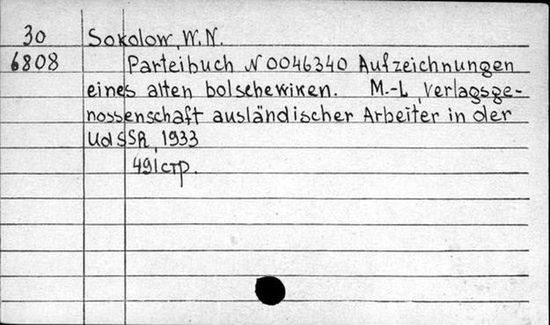 30 Sokolow, W. N.
6808 Parteibuch N 0046340 Aufzeichnungen
eines alten bolschewiken. M.-L, Verlagsge-
nossenschaft ausländischer Arbeiter in der
UdSSR, 1933
491 стр.